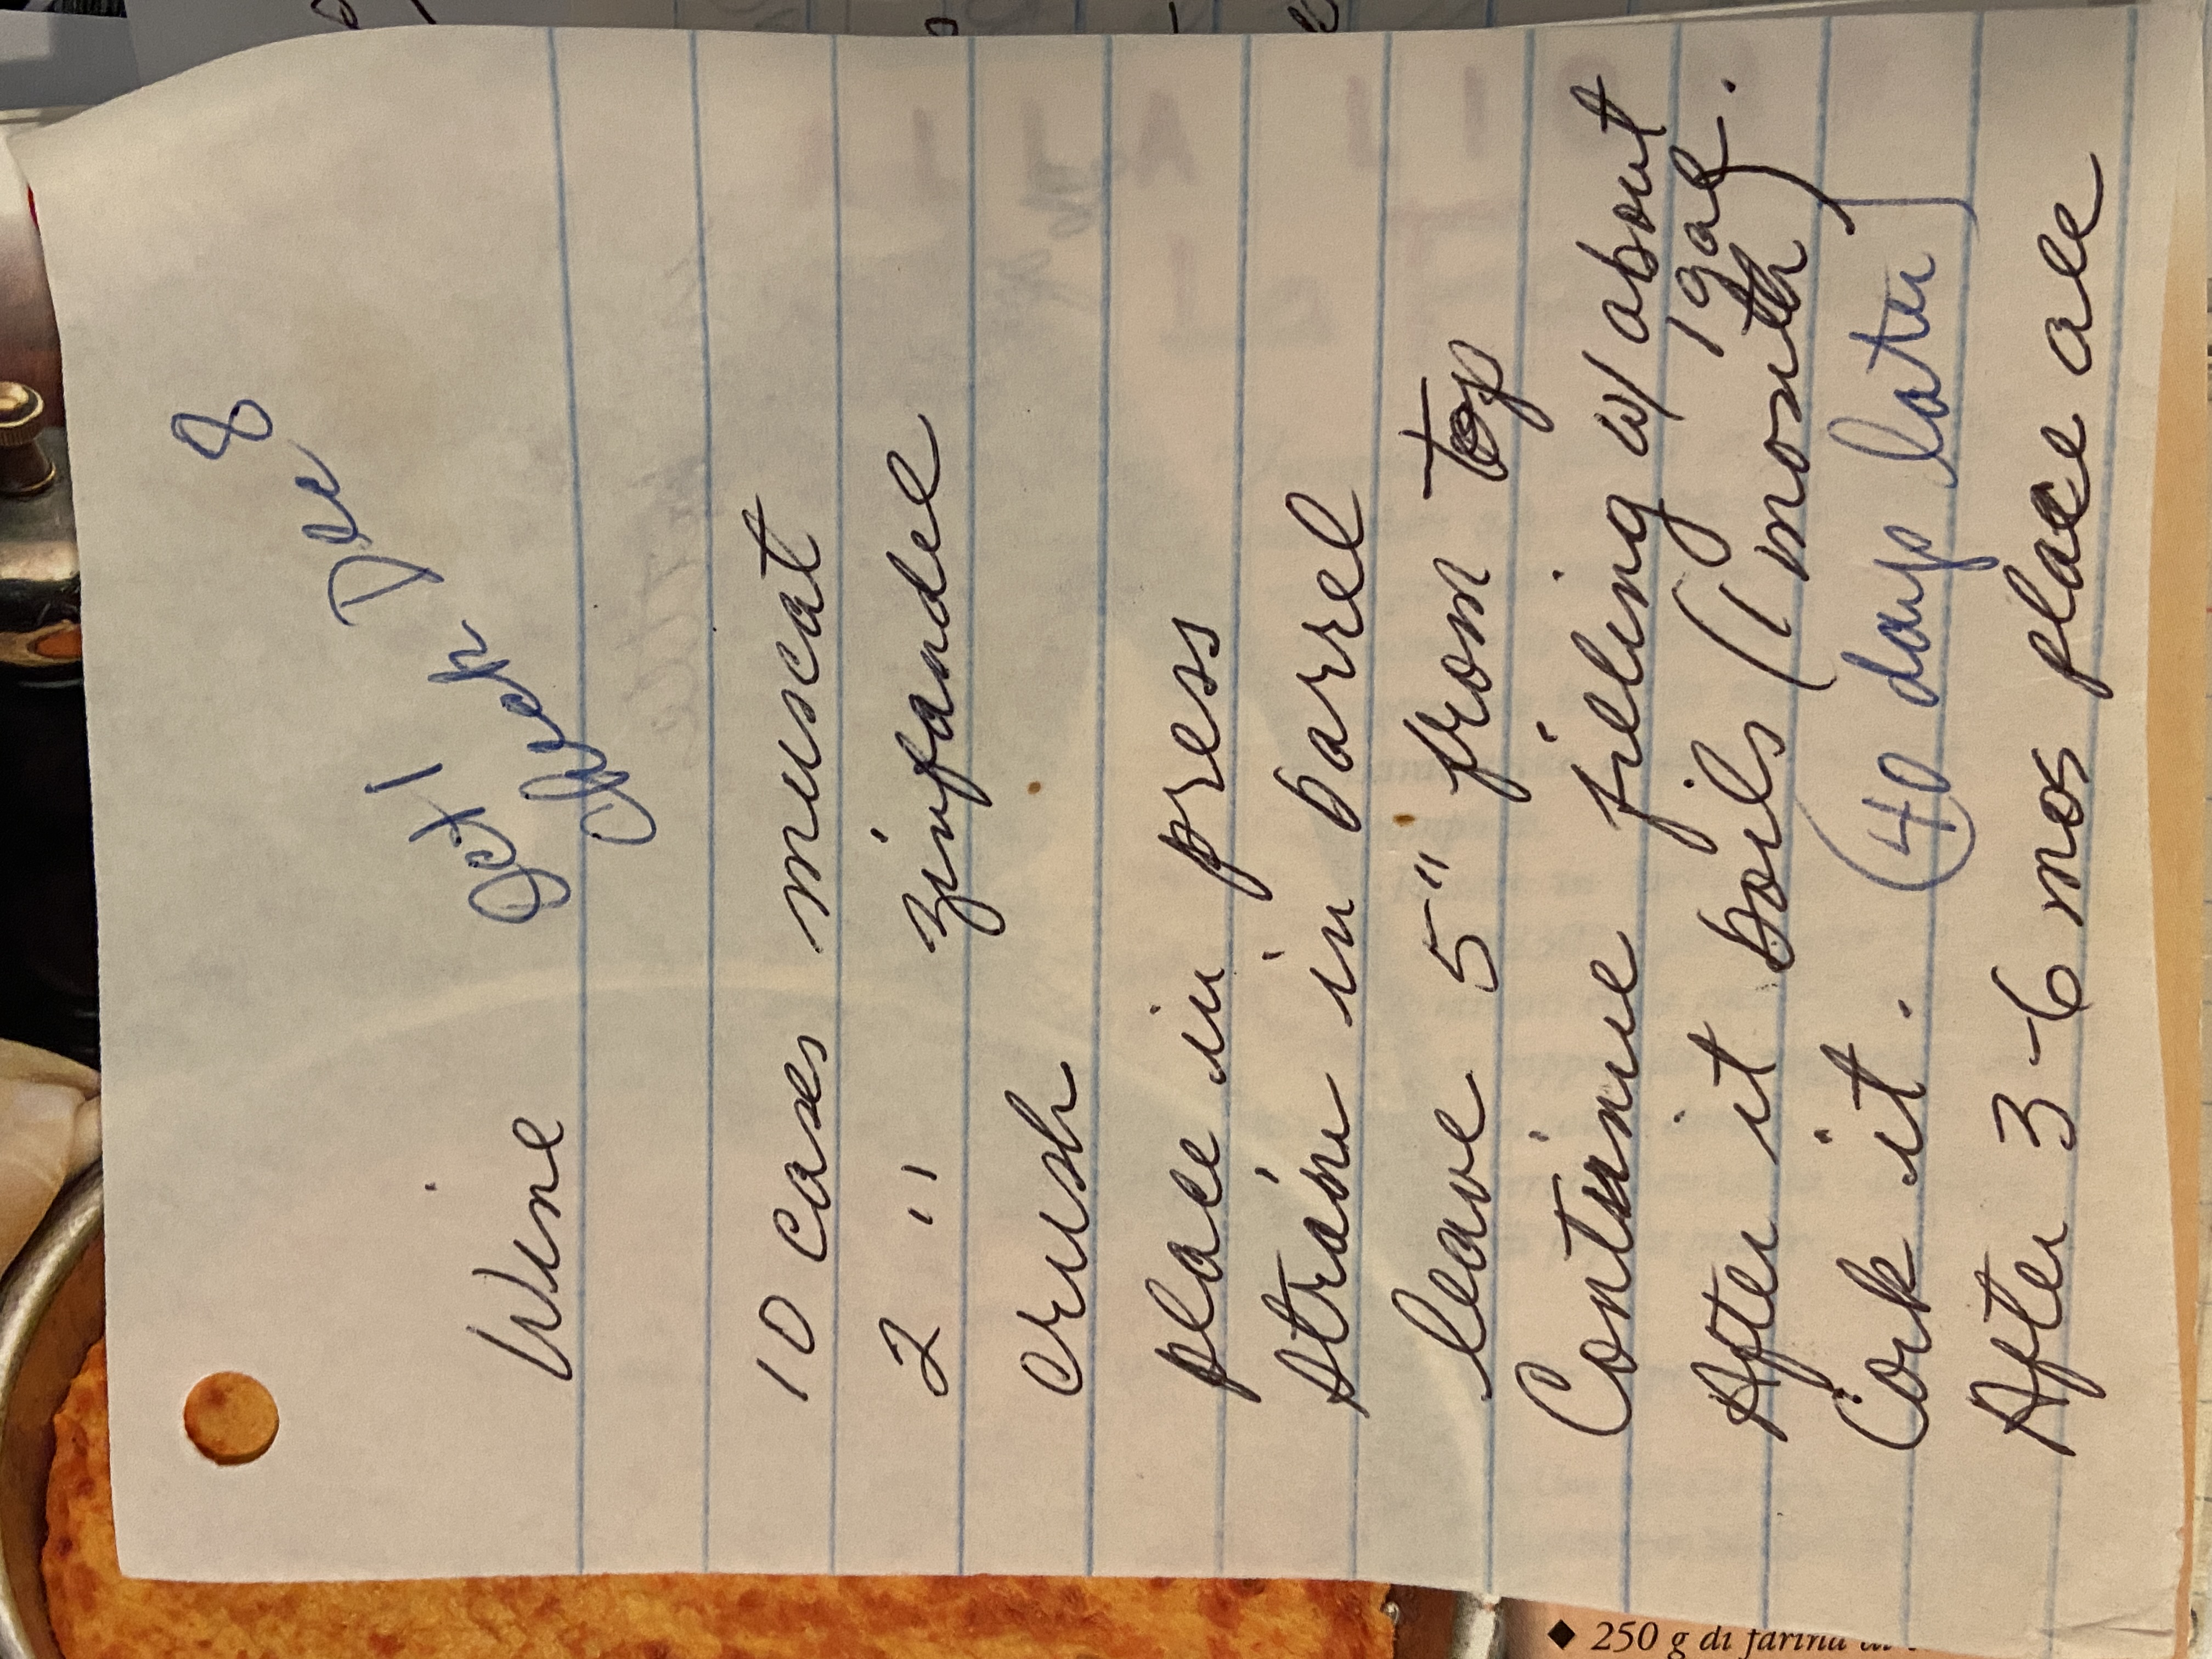 Oct 1
Check Dec 8
Wine
10 cases muscat
2 " zinfandel
crush
place in press
strain in barrel
leave 5" from top
Continue filling w/ about
1 gal.
After it boils (1 month)
Cork it. (40 days later)
After 3-6 mos place all
◆ 250 g di farina